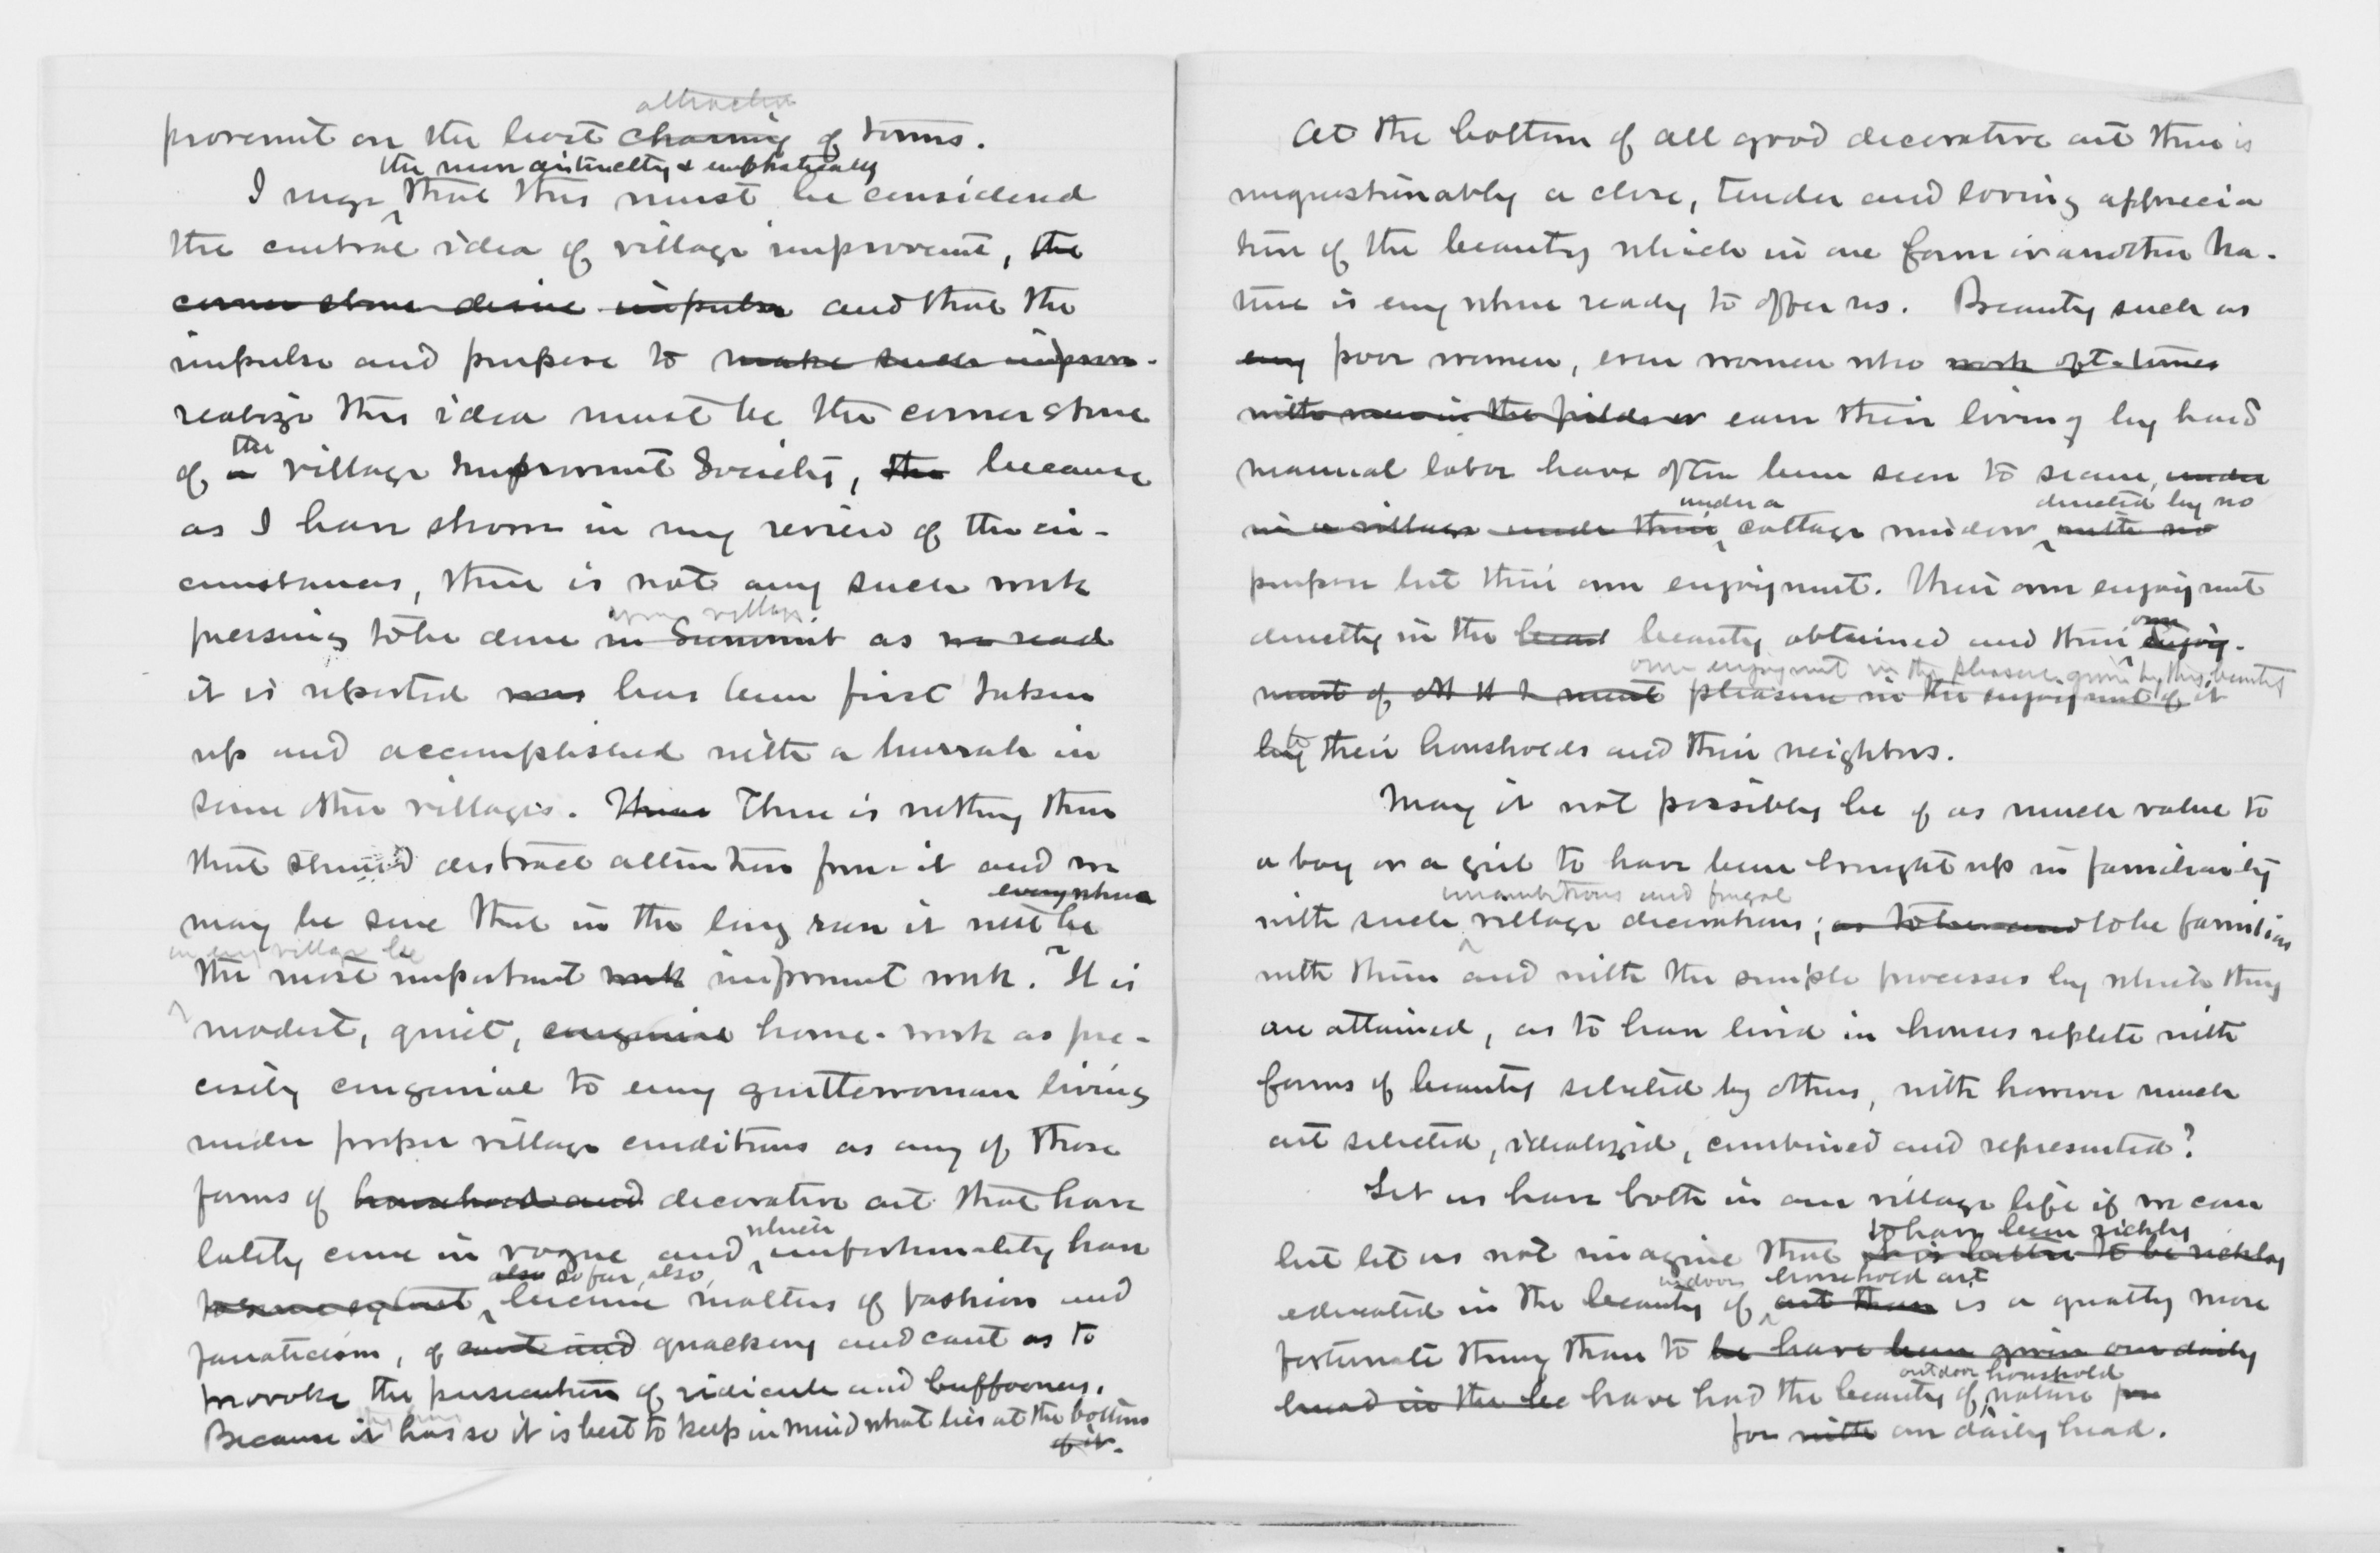 attractive
provement on the least charming of towns.
the more distinctly & emphatically
I urge that this must be considered
the central idea of village improvement, the
corner stone desire impulse and that the
impulse and purpose to make such improve-
realize this idea must be the corner stone
the
of a village Improvement Society, the because
as I have shown in my review of the cir-
cumstances, there is not any such work
your village
pressing to be done in Summit as we read
it is reported was has been first taken
up and accomplished with a hurrah in
some other villages. There is nothing then
that should distract attention from it and we
everywhere
may be sure that in the long run it will be
in any village be
the most important work improvement work. It is
modest, quiet, congenial home-work as pre-
cisely congenial to every gentlewoman living
under proper village conditions as any of those
forms of household and decorative art that have
which
lately come in vogue and unfortunately have
also so far, also,
become matters of fashion and
fanaticism, of cant and quackery and cant as to
provoke the persecution of ridicule and buffoonery.
Because it has so it is best to keep in mind what lies at the bottom
of it.
At the bottom of all good decorative art there is
unquestionably a close, tender and loving apprecia
tion of the beauty which in one form or another Na-
ture is every where ready to offer us. Beauty such as
every poor women, even women who work oft-times
with men in the fields or earn their living by hard
manual labor have often been seen to secure, under
under a directed by no
in a village under their cottage window with no
purpose but their own enjoyment. Their own enjoyment
own
directly in the beauty obtained and their enjoy-
own enjoyment in the pleasure given by this beauty
ment of pleasure in the enjoyment of it
to
by their households and their neighbors.
May it not possibly be of as much value to
a boy or a girl to have been brought up in familiarity
unambitious and frugal
with such village decorations; to be familiar
with them and with the simple processes by which they
are attained, as to have lived in houses replete with
forms of beauty selected by others, with however much
art selected, idealized, combined and represented?
Let us have both in our village life if we can
to have been richly
but let us not imagine that it is better to be richly
indoor household art
educated in the beauty of art than is a greatly more
fortunate thing than to be have been given our daily
outdoor household
bread in the be have had the beauty of nature
for with our daily bread.